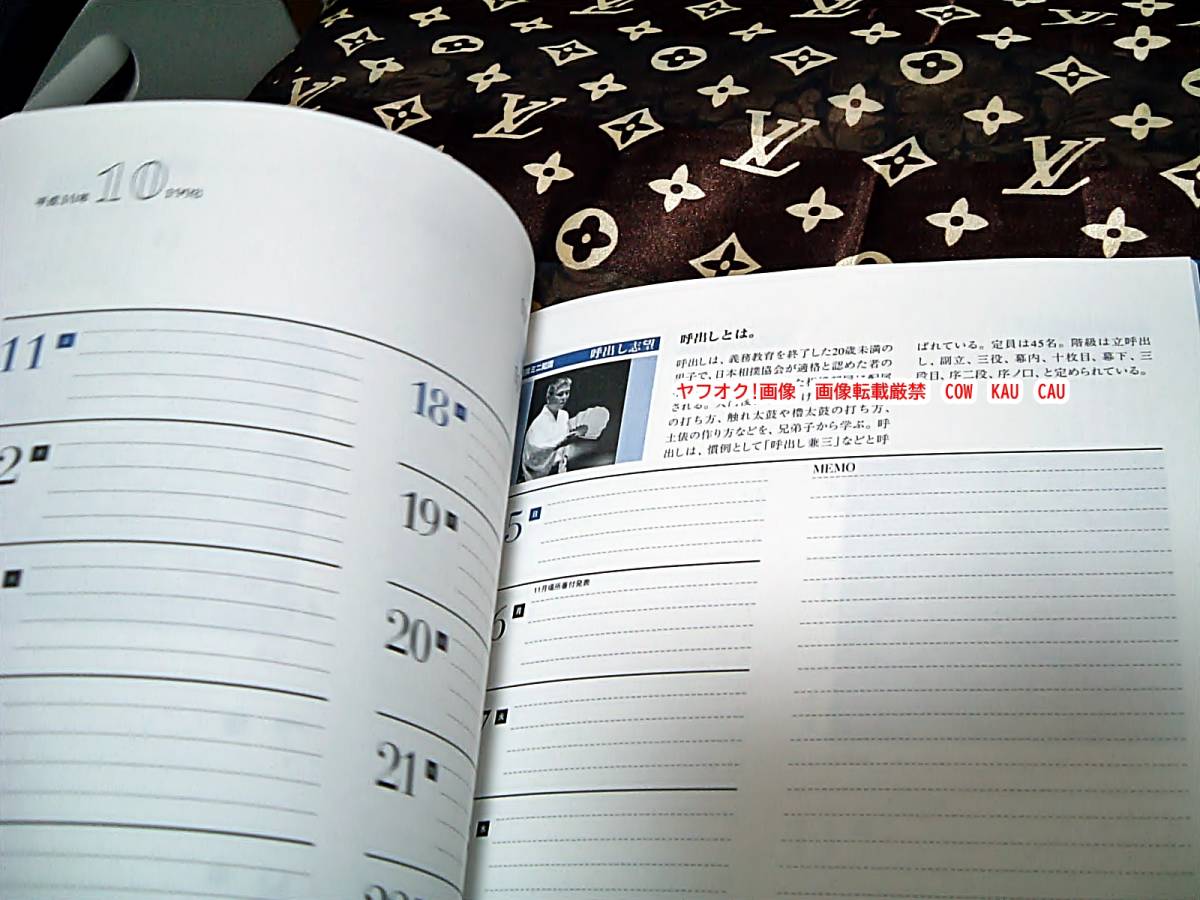 平成10年 10 1998
11
18
2
19
20
21
呼出し志望
呼出しとは。
呼出しは、義務教育を終了した20歳未満の
男子で、日本相撲協会が適格と認めた者の
される。
の打ち方、触れ太鼓や櫓太鼓の打ち方、
土俵の作り方などを、兄弟子から学ぶ。呼
出しは、慣例として「呼出し兼三」などと呼
ばれている。定員は45名。階級は立呼出
し、副立、三役、幕内、十枚目、幕下、三
段目、序二段、序ノ口、と定められている。
ヤフオク!画像 画像転載厳禁 COW KAU CAU
MEMO
5 日
11月場所番付発表
6 月
7 火
水